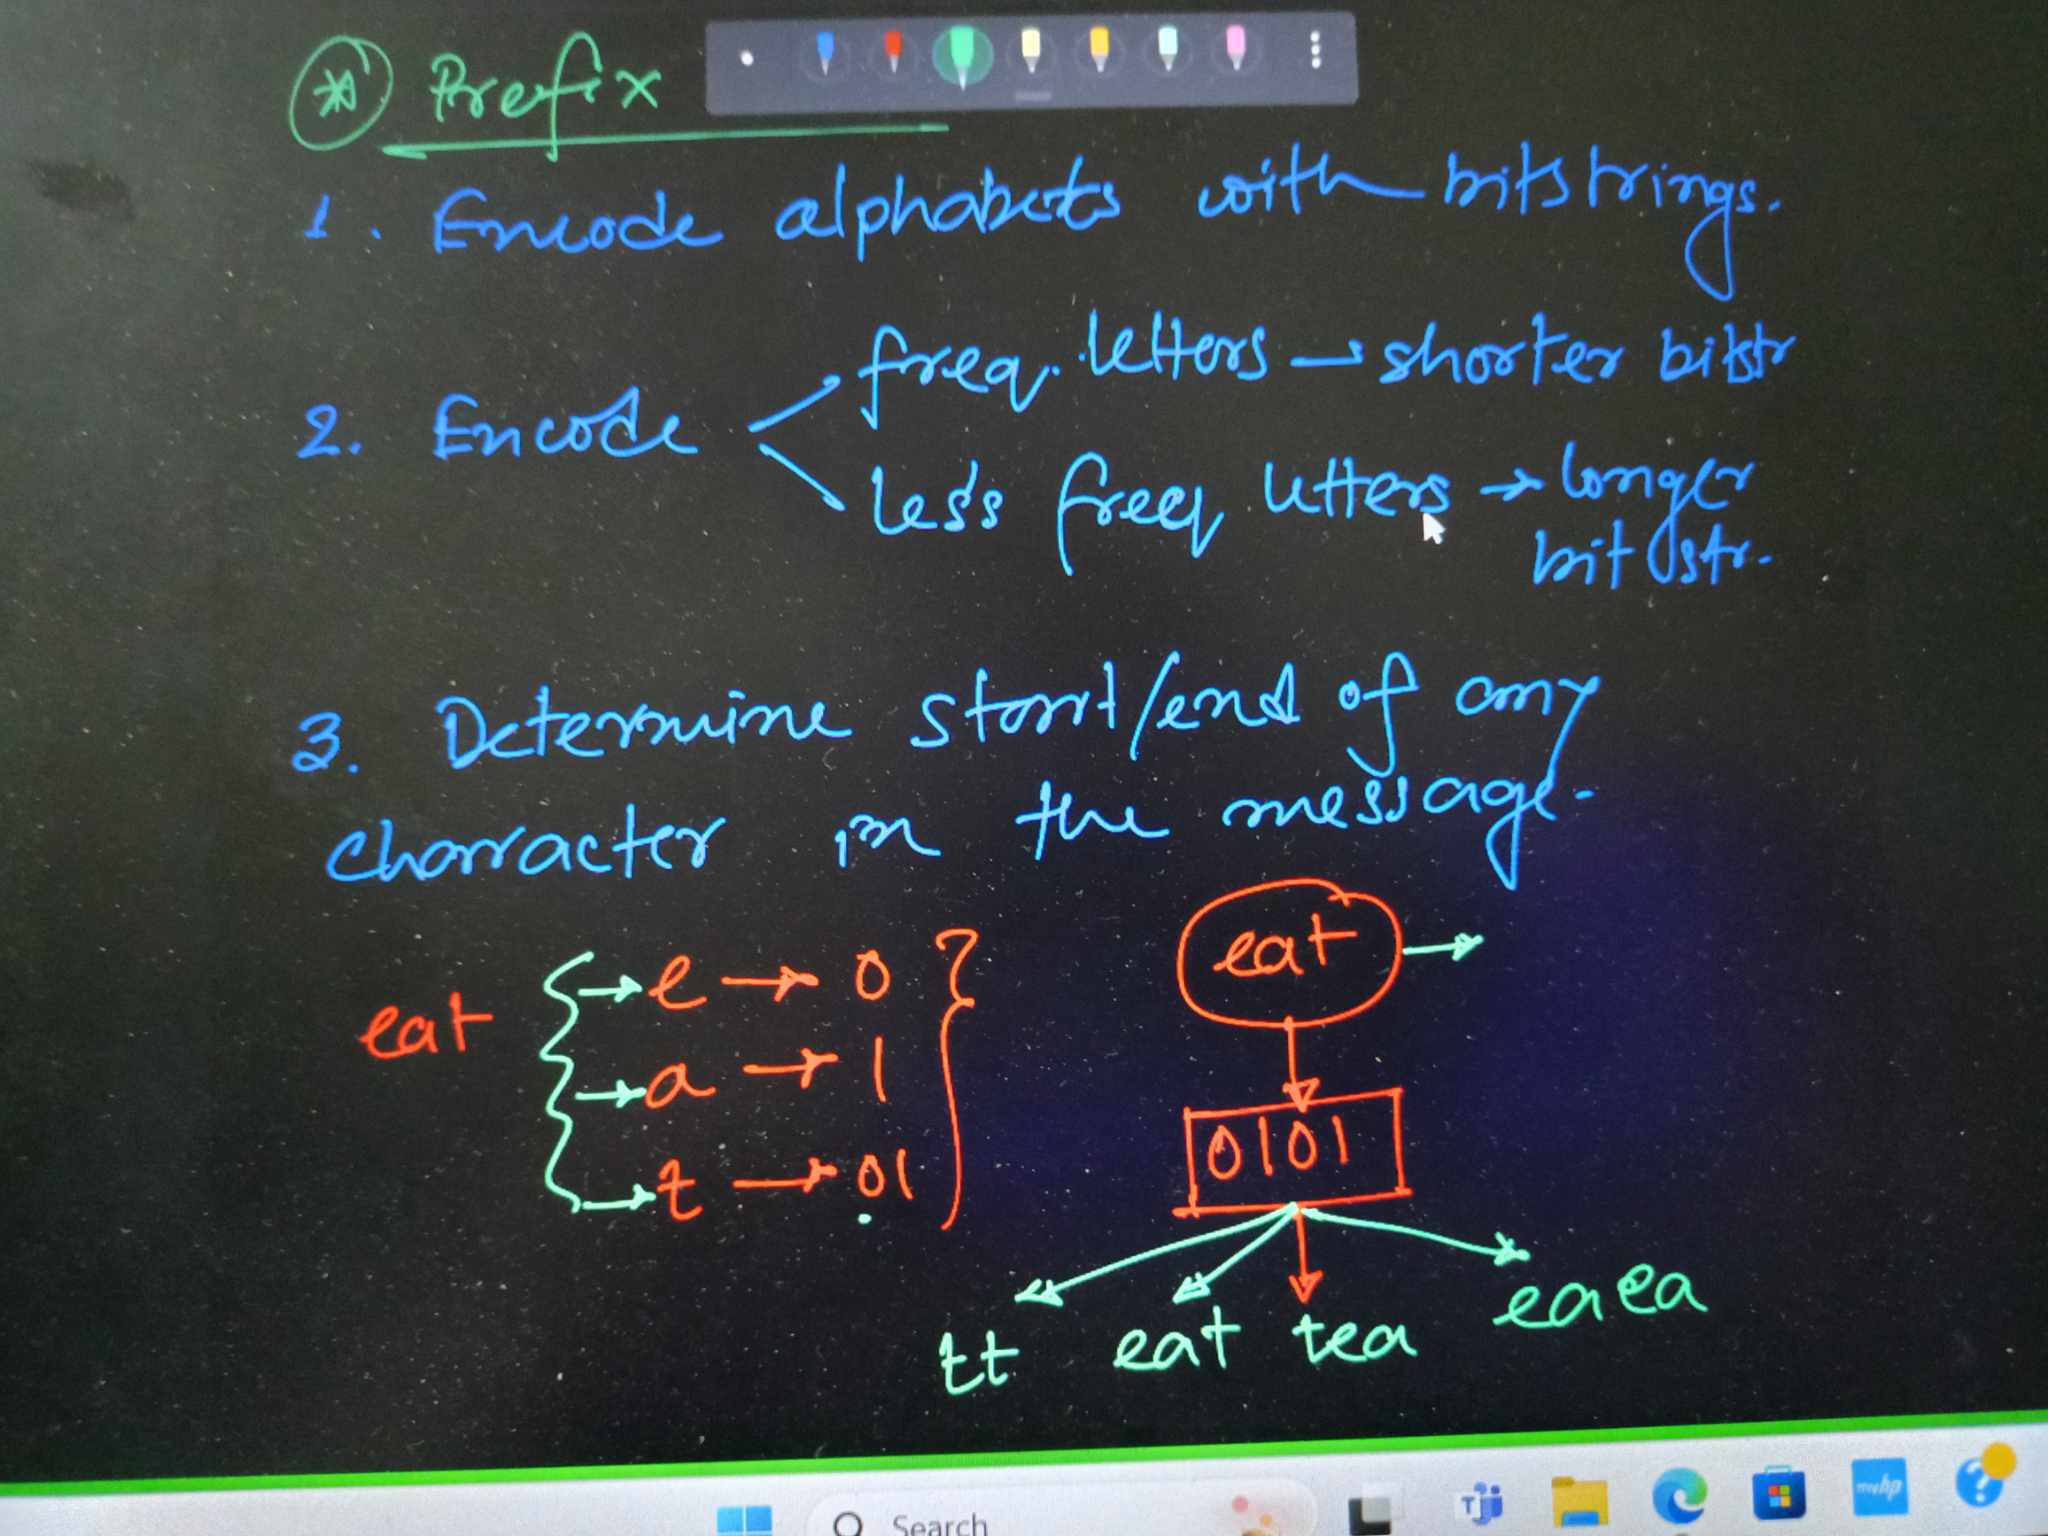 * Prefix
1. Encode alphabets with bitstrings.
freq. letters → shorter bitstr
2. Encode
less freq letters → longer
bit str.
3. Determine start/end of any
character in the message.
eat
e → 0
a → 1
t → 01
eat →
0101
tt eat tea eaea
Search
myhp